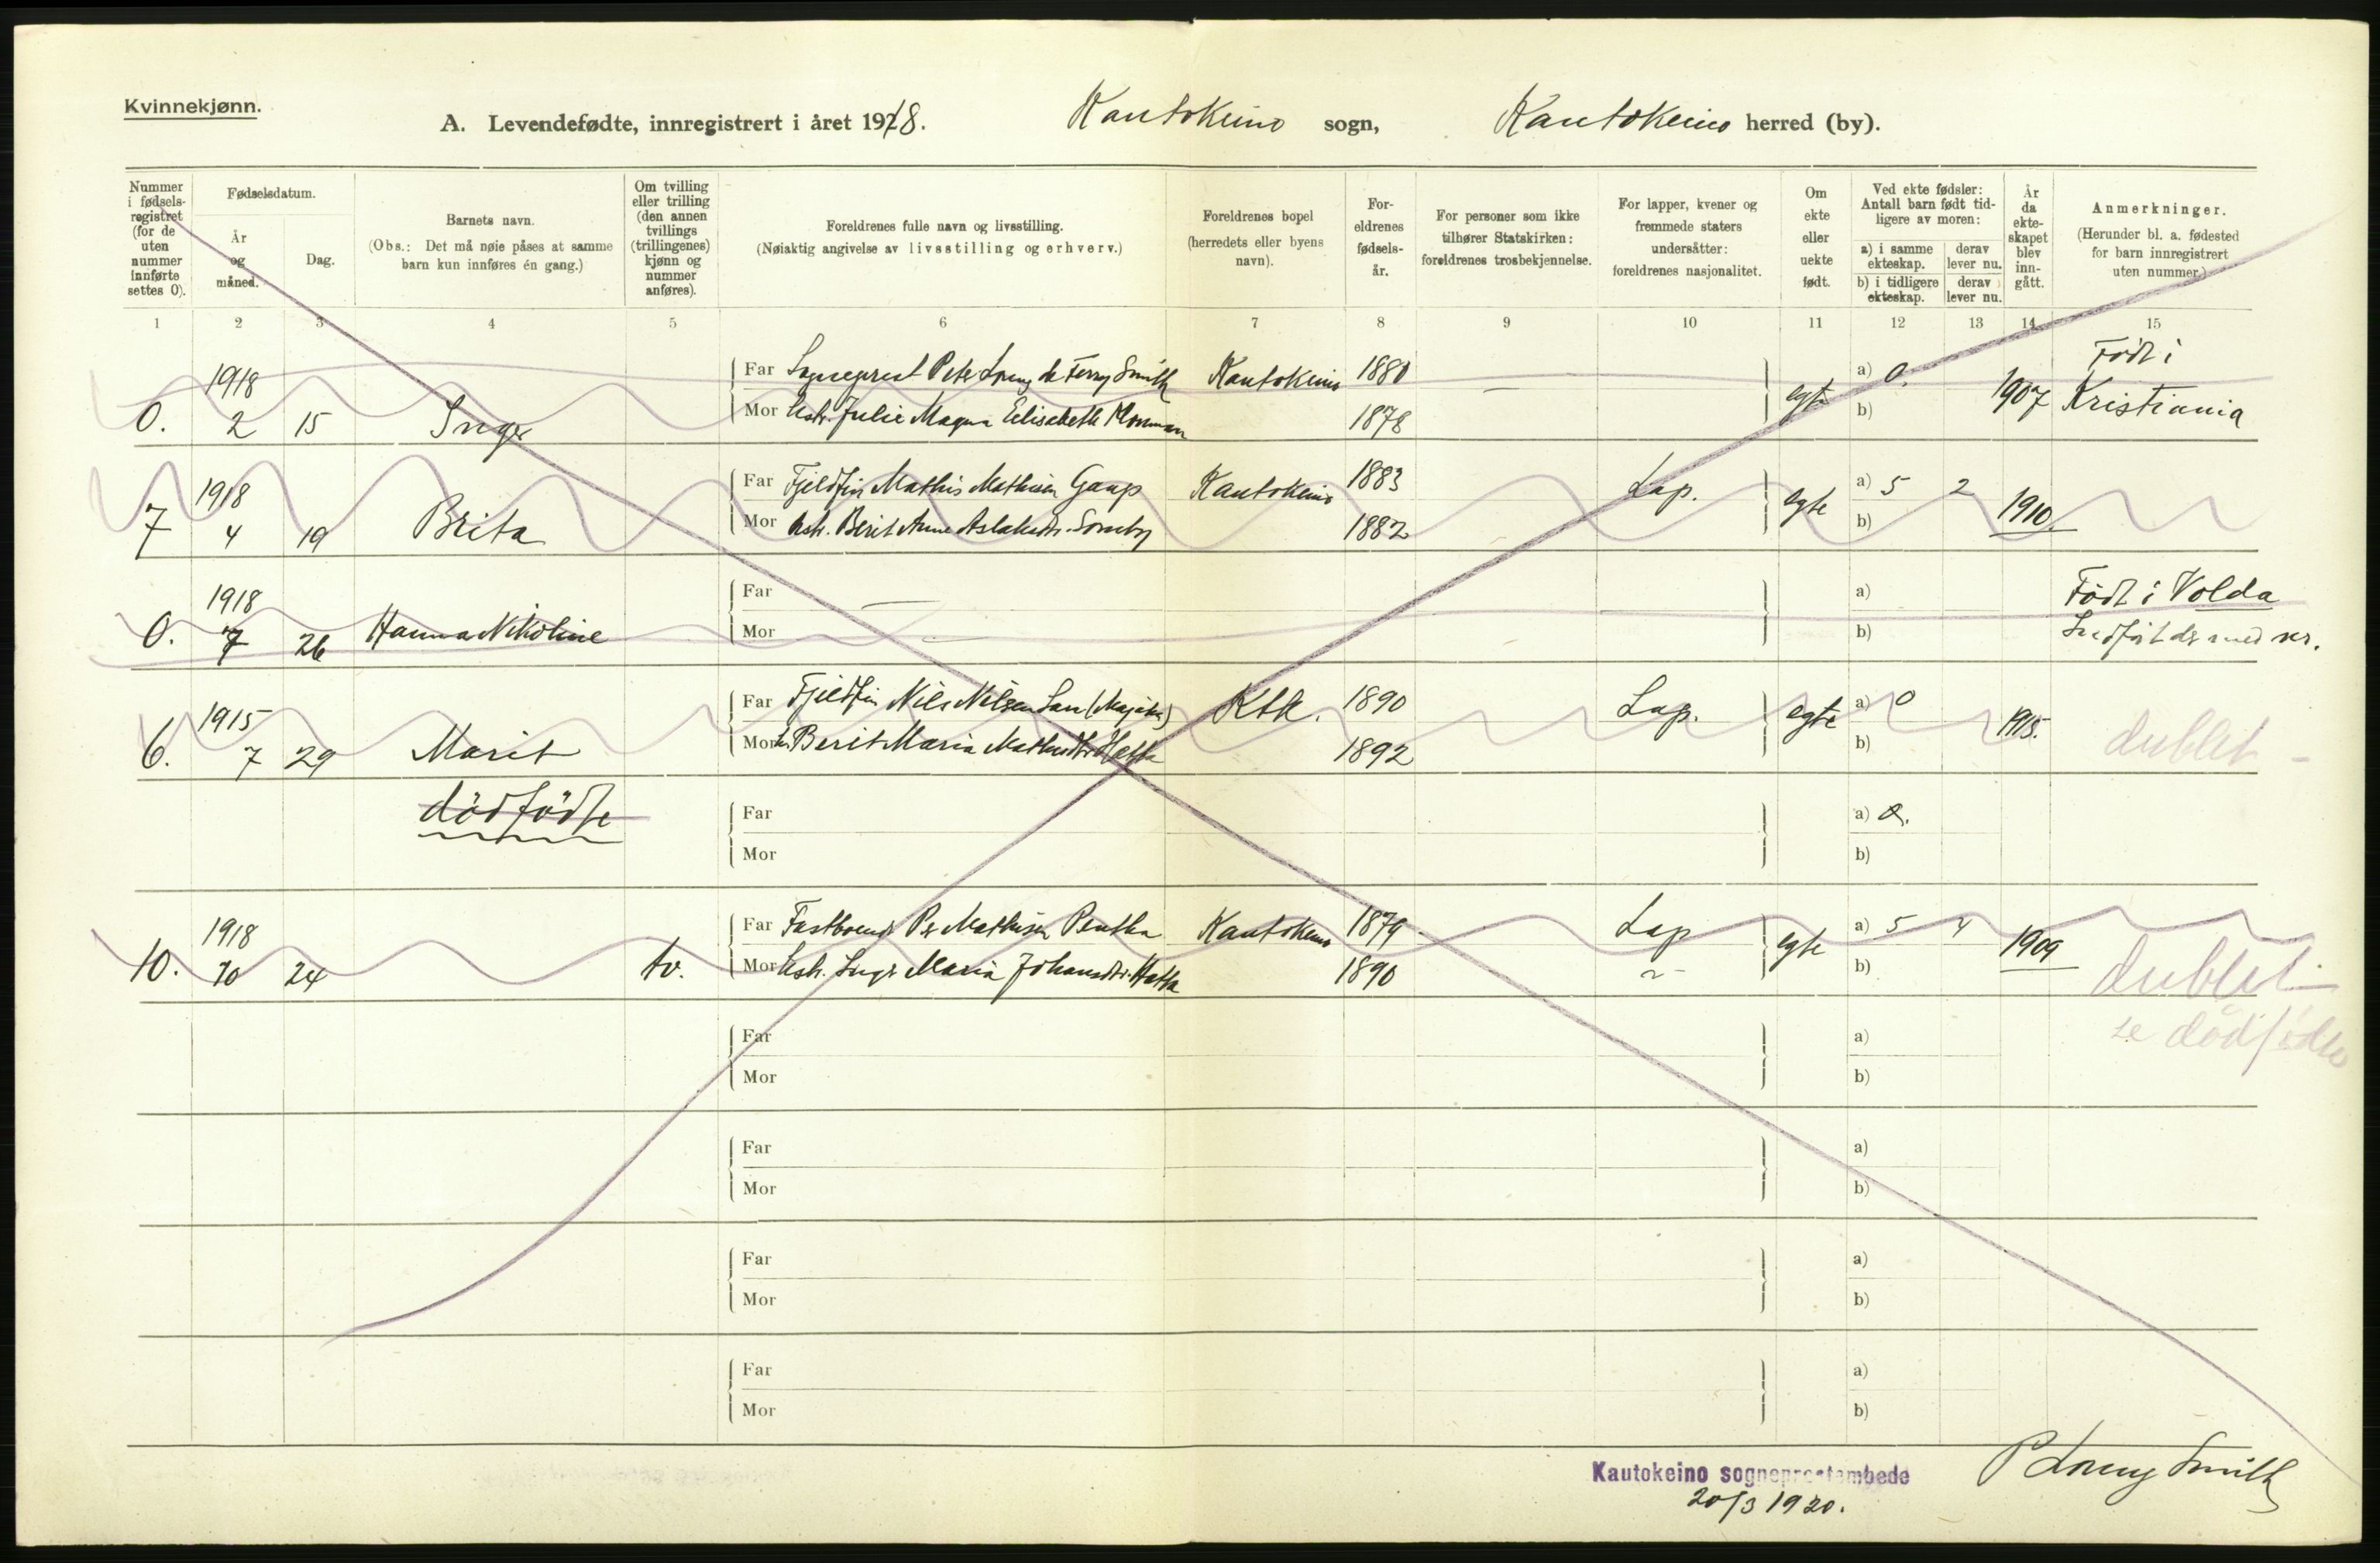 Kvinnekjønn.
A. Levendefødte, innregistrert i året 1918. Kautokeino sogn, Kautokeino herred (by).
Nummer i fødsels-registret (for de uten nummer innførte settes 0).
Fødselsdatum.
År og måned.
Dag.
Barnets navn.
(Obs.: Det må nøie påses at samme barn kun innføres én gang.)
Om tvilling eller trilling (den annen tvillings (trillingenes) kjønn og nummer anføres).
Foreldrenes fulle navn og livsstilling.
(Nøiaktig angivelse av livsstilling og erhverv.)
Foreldrenes bopel (herredets eller byens navn).
For-eldrenes fødsels-år.
For personer som ikke tilhører Statskirken: foreldrenes trosbekjennelse.
For lapper, kvener og fremmede staters undersåtter: foreldrenes nasjonalitet.
Om ekte eller uekte født.
Ved ekte fødsler: Antall barn født tid-ligere av moren:
a) i samme ekteskap.
derav lever nu.
b) i tidligere ekteskap.
derav lever nu.
År da ekte-skapet blev inn-gått.
Anmerkninger.
(Herunder bl. a. fødested for barn innregistrert uten nummer.)
1 2 3 4 5 6 7 8 9 10 11 12 13 14 15
1918 Far Sogneprest Smith Kautokeino 1880 — a) 0. Født i
0. 2 15 Inger Mor Hstr. Julie Magna Elisabeth 1878 egte b) 1907 Kristiania
1918 Far Fjeldfin Mathis Mathisen Gaup Kautokeino 1883 Lap. a) 5 2
7 4 19 Brita Mor Hstr. Berit Anne Aslaksdtr. Somby 1882 egte b) 1910.
1918 Far — a) Født i Volda
0. 7 26 Hanna Nikoline Mor b)
1915 Far Fjeldfin Nils Nilsen Sara Ktk. 1890 Lap. egte a) 0 1915.
6. 7 29 Marit Mor Berit Maria Mathisdtr. Hætta 1892 b) dublet -
dödfödte Far a) 0.
Mor b)
1918 Far Fastboende Per Mathisen Pentha Kautokeino 1879 Lap a) 5 4
10. 10 24 tv. Mor Hstr. Inger Maria Johansdtr. Hætta 1890 egte b) 1909 dublet -
Far a) se dödfödte
Mor b)
Far a)
Mor b)
Far a)
Mor b)
Far a)
Mor b)
Kautokeino sogneprestembede
20/3 1920.
P Lorng Smith